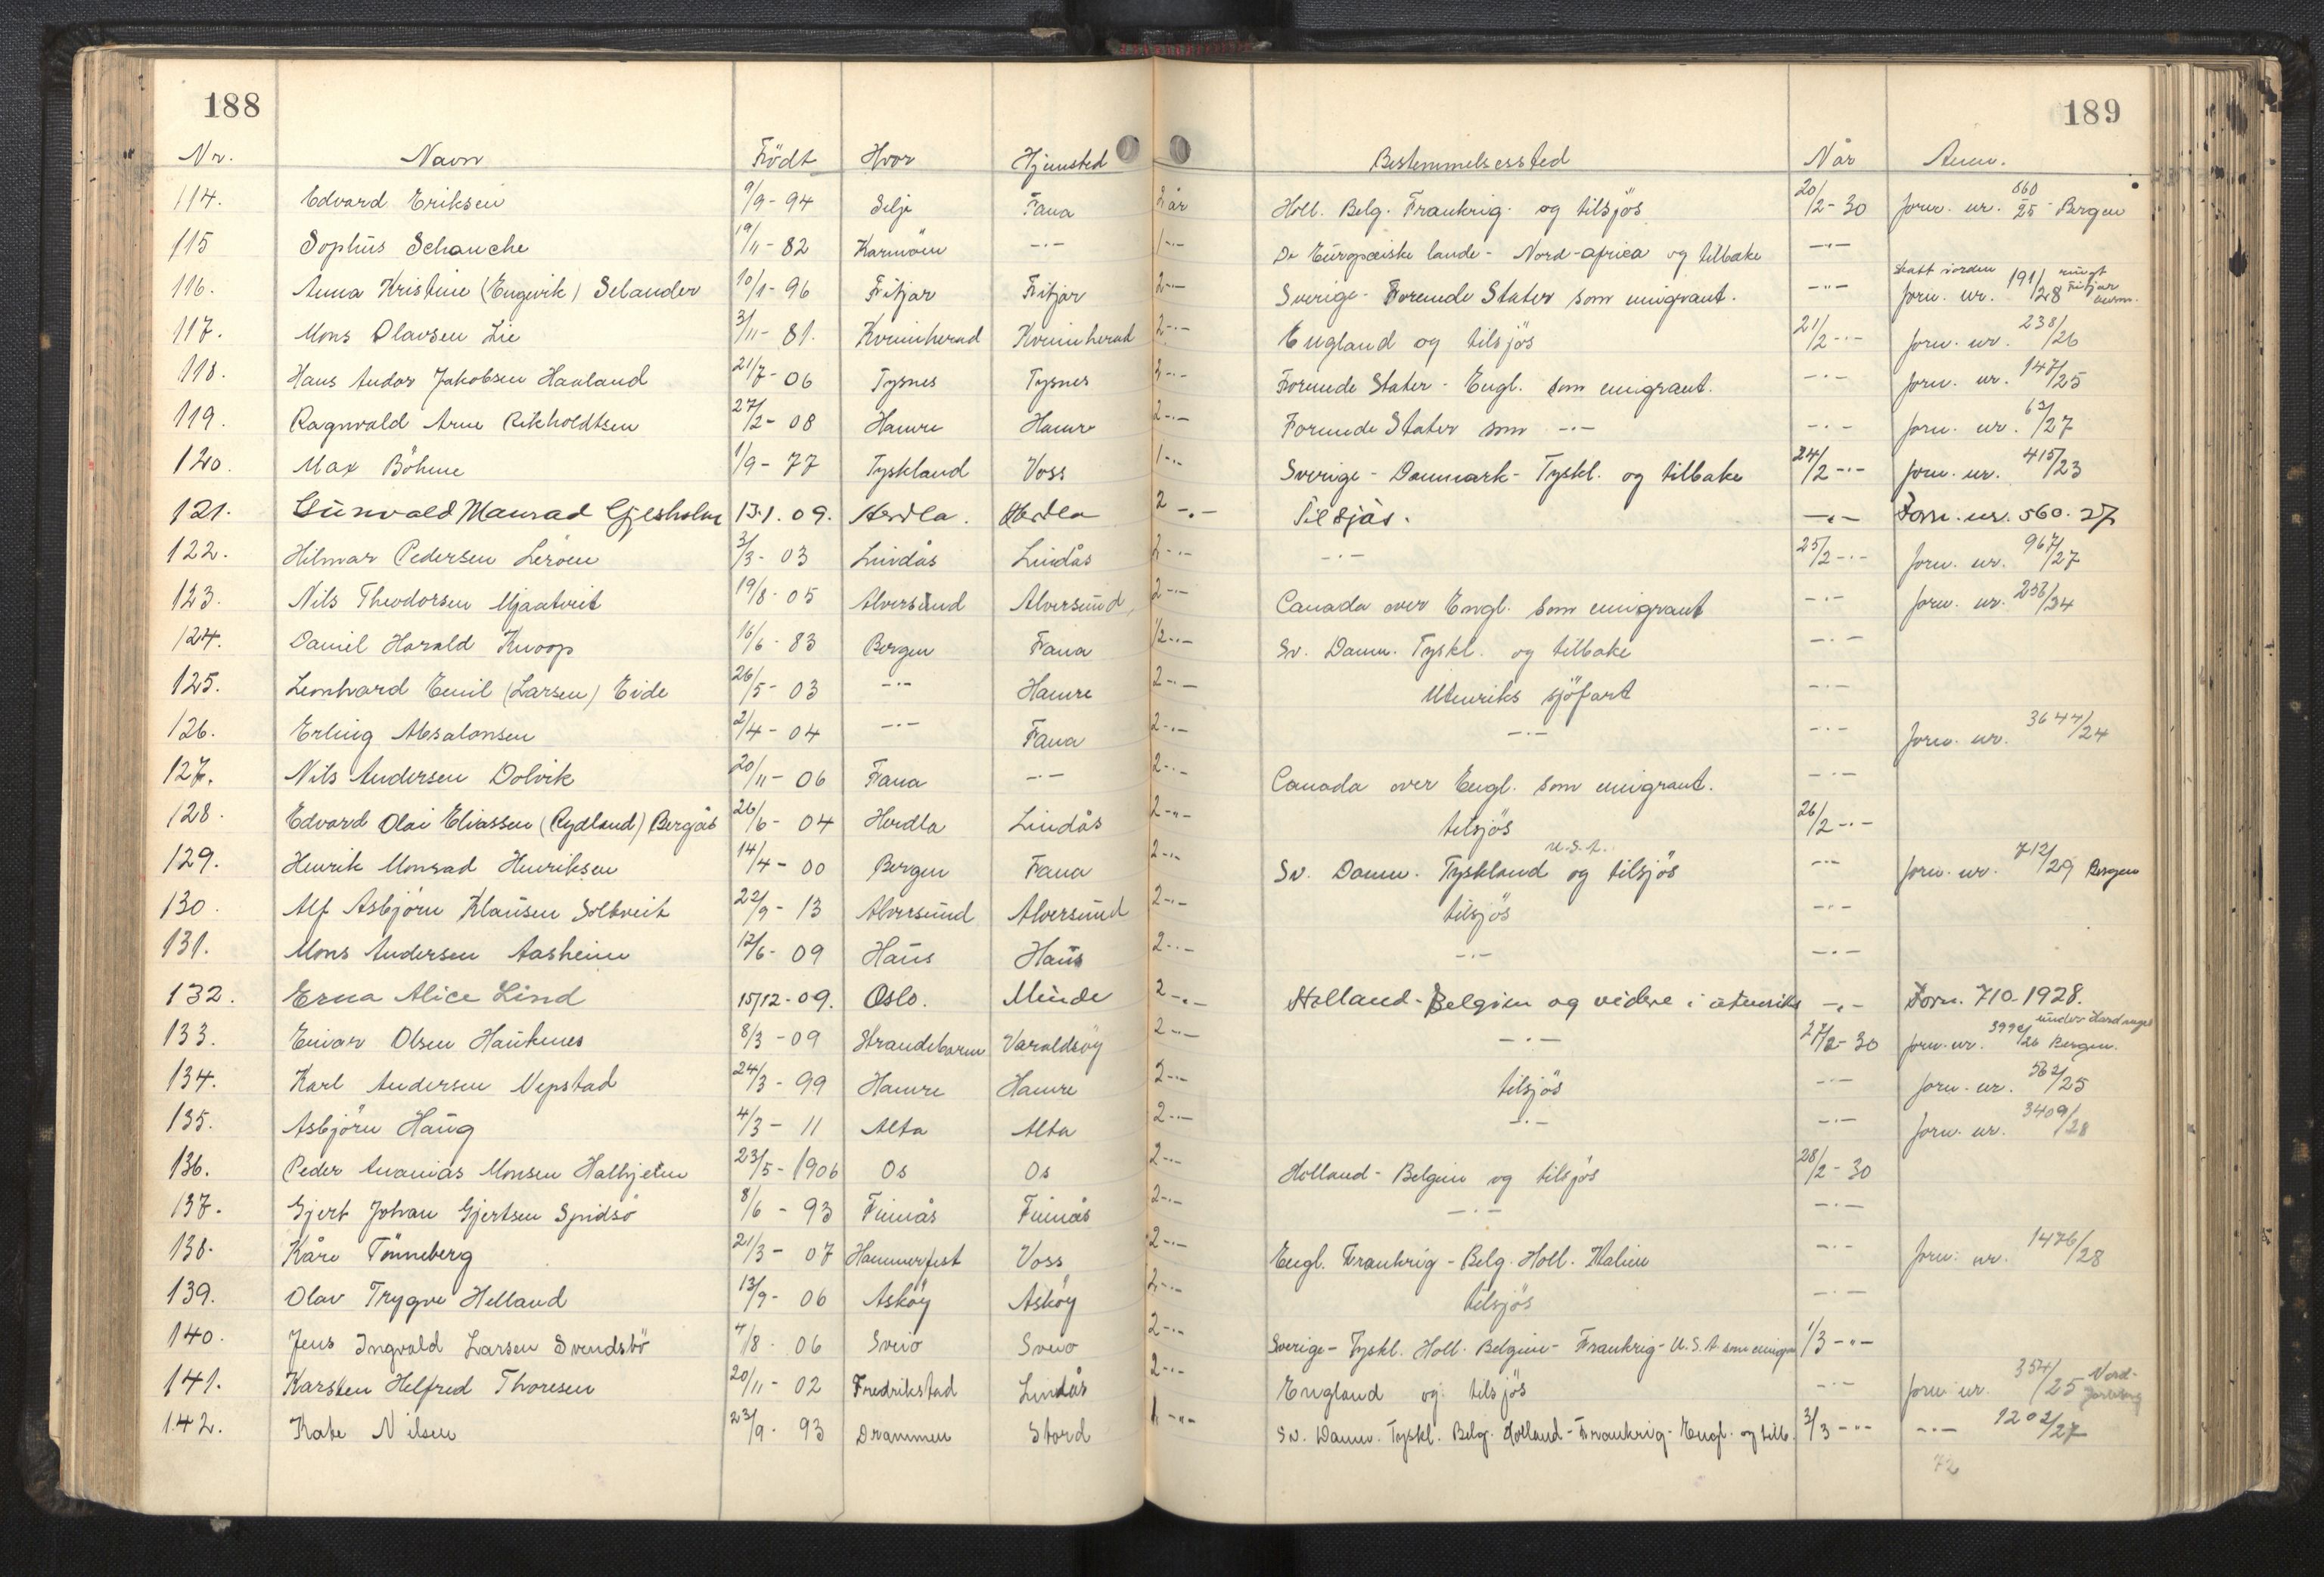 188
189
Nr. Navn Födt Hvor Hjemsted Bestemmelsessted Når Anm.
114. Edvard Eriksen 9/9 - 94 Selje Fana 2 år Holl. Belg. Frankrig og tilsjös 20/2 - 30 forn. nr. 860/25 - Bergen
115 Sophus Schanche 19/11 - 82 Karmöen -"- 1 -"- De Europæiske lande - Nord-africa og tilbake -"-
116. Anna Kristine (Engevik) Selander 10/1 - 96 Fitjar Fitjar 2 -"- Sverige - Forenede Stater som emigrant. -"- forn. nr. 191/28 Fitjar
117. Mons Olavsen Lie 3/11 - 81. Kvinnherad Kvinnherad 2 -"- England og tilsjös 21/2 -"- forn. nr. 238/26
118. Hans Andor Jakobsen Haaland 21/7 - 06 Tysnes Tysnes 3 -"- Forenede Stater - Engl. som emigrant. -"- forn. nr. 147/25
119. Ragnvald Arne Rikholdtsen 27/2 - 08 Hamre Hamre 2 -"- Forenede Stater som -"- -"- forn. nr. 63/27
120. Max Böhme 1/9 - 77 Tyskland Voss 1 -"- Sverige - Danmark - Tyskl. og tilbake 24/2 -"- forn. nr. 415/23
121. Gunvald Manrad Gjesholm 13.1.09. Herdla. Herdla 2 -"- Tilsjös. -"- Forn. nr. 560. 27
122. Hilmar Pedersen Leröen 3/3 - 03 Lindås Lindås 2 -"- -"- 25/2 -"- forn. nr. 967/27
123. Nils Theodorsen Mjaatveit 19/8 - 05 Alversund Alversund, 2 -"- Canada over Engl. som emigrant -"- forn. nr. 236/24
124. Daniel Harald Knoop 16/6 - 83 Bergen Fana 1/2 -"- Sv. Danm. Tyskl. og tilbake -"-
125. Leonhard Emil (Larsen) Eide 26/5 - 03 -"- Hamre 2 -"- Utenriks sjöfart -"-
126. Erling Absalonsen 2/4 - 04 -"- Fana 2 -"- -"- -"- forn. nr. 3644/24
127. Nils Andersen Dolvik 20/11 - 06 Fana -"- 2 -"- Canada over Engl. som emigrant. -"-
128. Edvard Olai Eliassen (Rydland) Bergås 26/6 - 04 Herdla Lindås 2 -"- tilsjös 26/2 -"-
129. Henrik Monrad Henriksen 14/4 - 00 Bergen Fana 2 -"- Sv. Danm. Tyskland U.S.A. og tilsjös -"- forn. nr. 712/29 Bergen
130. Alf Asbjörn Klausen Soltveit 22/9 - 13 Alversund Alversund 2 -"- tilsjös -"-
131. Mons Andersen Aasheim 12/6 - 09 Haus Haus 2 -"- -"- -"-
132. Erna Alice Lind 15/12 - 09. Oslo. Minde 2 -"- Holland - Belgien og videre i utenriks -"- Forn. 710 - 1928.
133. Einar Olsen Haukenes 8/3 - 09 Strandebarm Varaldsöy 2 -"- -"- 27/2 - 30 forn. nr. 3992/26 Bergen. under Hardanger
134. Karl Andersen Nepstad 24/3 - 99 Hamre Hamre 2 -"- tilsjös -"- forn. nr. 562/25
135. Asbjörn Haug 4/3 - 11 Alta Alta 2 -"- -"- -"- forn. nr. 3409/28
136. Peder Ananias Monsen Halhjelm 23/5 - 1906 Os Os 2 -"- Holland - Belgien og tilsjös 28/2 - 30
137. Gjert Johan Gjertsen Spidsö 8/6 - 93 Finnås Finnås 2 -"- -"- -"-
138. Kåre Tönneberg 21/3 - 07 Hammerfest Voss 2 -"- Engl. Frankrig - Belg. Holl. Italien -"- forn. nr. 1476/28
139. Olav Trygve Helland 13/9 - 06 Asköy Asköy 2 -"- tilsjös -"-
140. Jens Ingvald Larsen Svendsbö 4/8 - 06 Sveio Sveio 2 -"- Sverige - Tyskl. Holl. Belgien - Frankrig - U.S.A som emigra 1/3 -"-
141. Karsten Helfred Thoresen 20/11 - 02 Fredrikstad Lindås 2 -"- England og tilsjös -"- forn. nr. 354/25 Nord- Jarlsberg
142. Kate Nilsen 23/9 - 93 Drammen Stord 1 -"- Sv. Danm. Tyskl. Belg. Holland - Frankrig - Engl. og tilb. 3/3 -"- -"- 1202/27
72